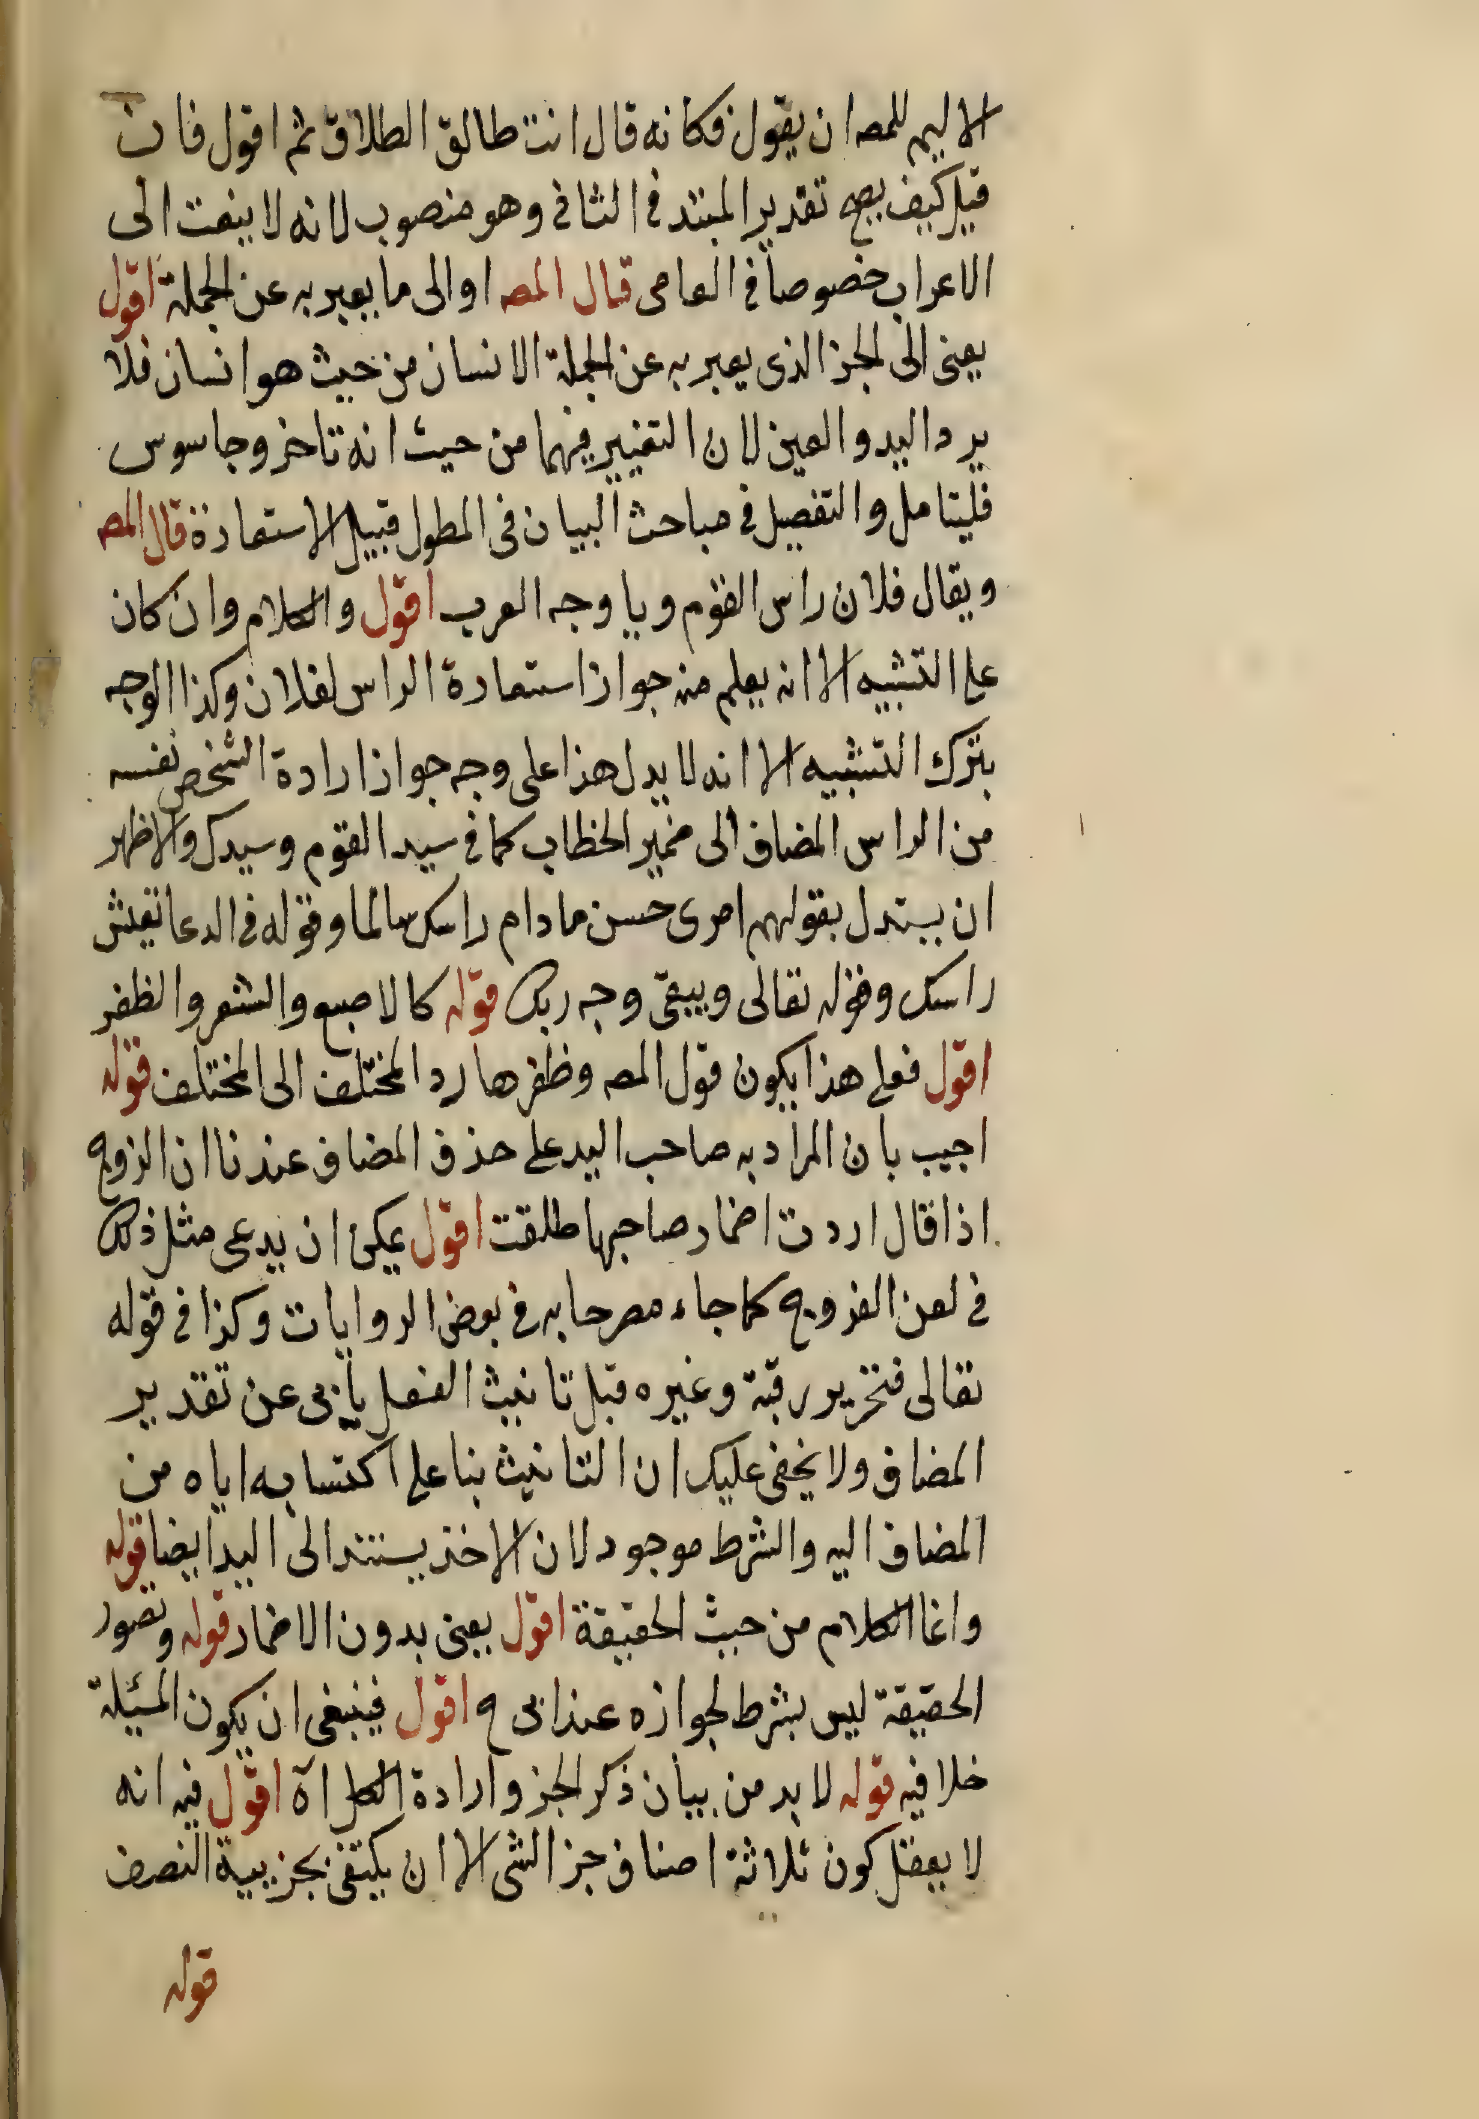 الاليم للمصـ ان يقول فكانه قال انت طالق الطلاق ثم اقول فان
قيل كيف يصح تقدير المبتد في الثاني وهو منصوب لانه لا يلفت الى
الاعراب خصوصا في العامى قال المصـ او الى ما يعبر به عن الجملة اقول
يعنى الى الجز الذى يعبر به عن الجملة الانسان من حيث هو انسان فلا
يرد اليد والعين لان التغيير فيهما من حيث انه تاخر وجاسوس
فليتامل والتفصيل في مباحث البيان فى المطول قبيل الاستعارة قال المصـ
ويقال فلان راس القوم ويا وجه العرب اقول والكلام وان كان
على التشبيه الا انه يعلم منه جواز استعارة الراس لفلان وكذا الوجه
بترك التشبيه الا انه لا يدل هذا على وجه جواز ارادة الشخص نفسه
من الراس المضاف الى ضمير الخطاب كما في سيد القوم وسيدك والاظهر
ان يستدل بقولهم امرى حسن مادام راسك سالما وقوله في الدعا تعيش
راسك وقوله تعالى ويبقى وجه ربك قوله كالاصبع والشعر والظفر
اقول فعلى هذا يكون قول المصـ وظفرها رد المختلف الى المختلف قوله
اجيب بان المراد به صاحب اليد على حذف المضاف عندنا ان الزوج
اذا قال اردت اضمار صاحبها طلقت اقول يمكن ان يدعى مثل ذلك
في لعن الفروج كما جاء مصرحا به في بعض الروايات وكذا في قوله
تعالى فتحرير رقبة وغيره قبل تانيث الفعل يابى عن تقدير
المضاف ولا يخفى عليك ان التانيث بنا على اكتسابه اياه من
المضاف اليه والشرط موجود لان الاخذ يستند الى اليد ايضا قوله
وانما الكلام من حيث الحقيقة اقول يعنى بدون الاضمار قوله وتصور
الحقيقة ليس بشرط لجوازه عند ابى ح اقول فينبغى ان يكون المسئلة
خلافيه قوله لابد من بيان ذكر الجز وارادة الكل اه اقول فيه انه
لا يعقل كون ثلاثة اصناف جز الشى الا ان يكتفى بجزيية النصف
قوله